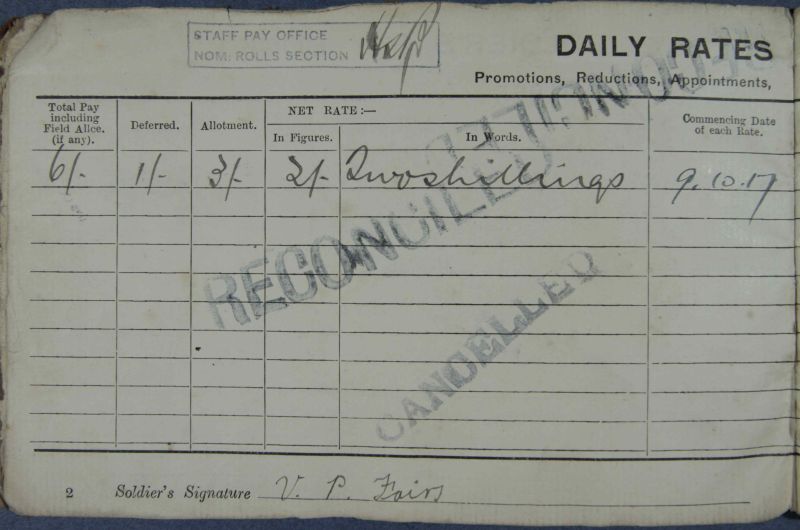 STAFF PAY OFFICE
NOM: ROLLS SECTION
DAILY RATES
Promotions, Reductions, Appointments,
Total Pay including Field Allce. (if any).
Deferred.
Allotment.
NET RATE:—
In Figures.
In Words.
Commencing Date of each Rate.
6/- 1/- 3/- 2/- Two shillings 9.10.17
RECONCILED
CANCELLED
2 Soldier's Signature V. P. Fairs